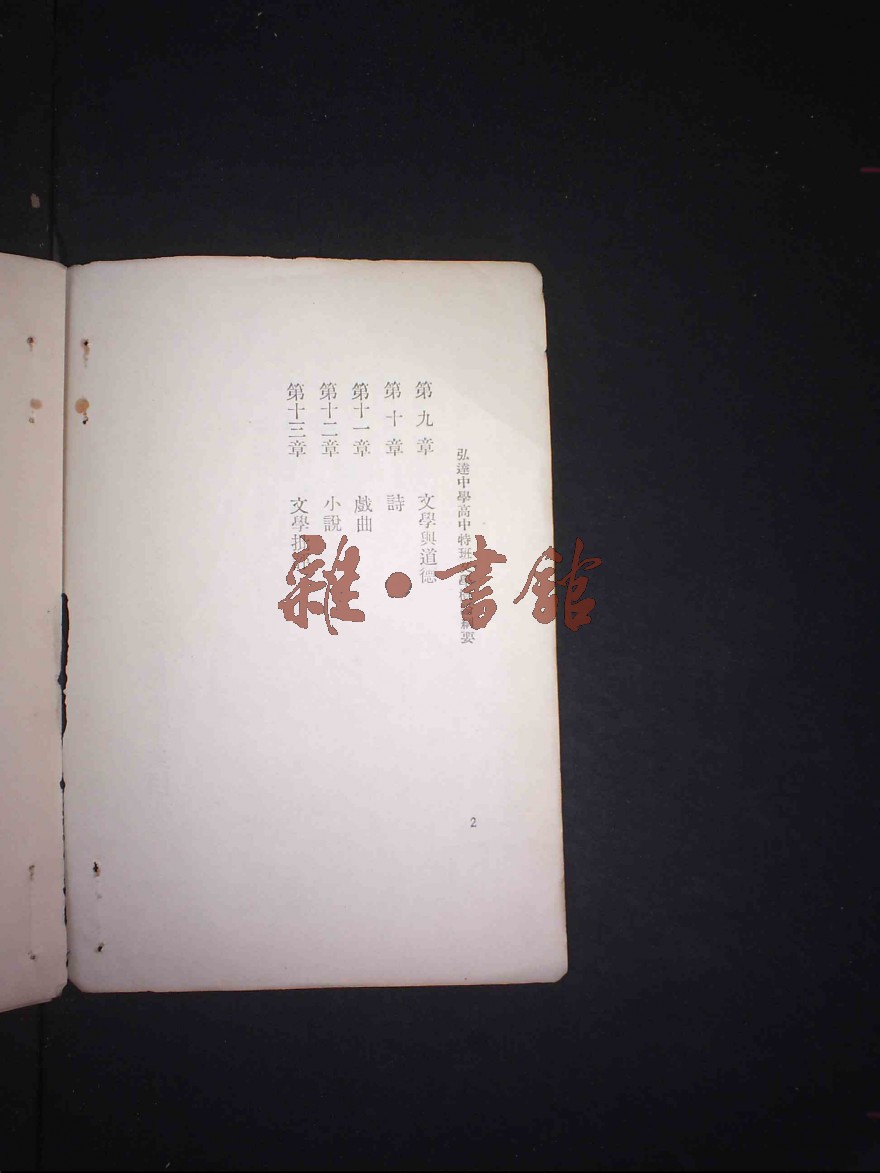 弘達中學高中特班
要
第九章 文學與道德
第十章 詩
第十一章 戲曲
第十二章 小說
第十三章 文學
2
雜·書館